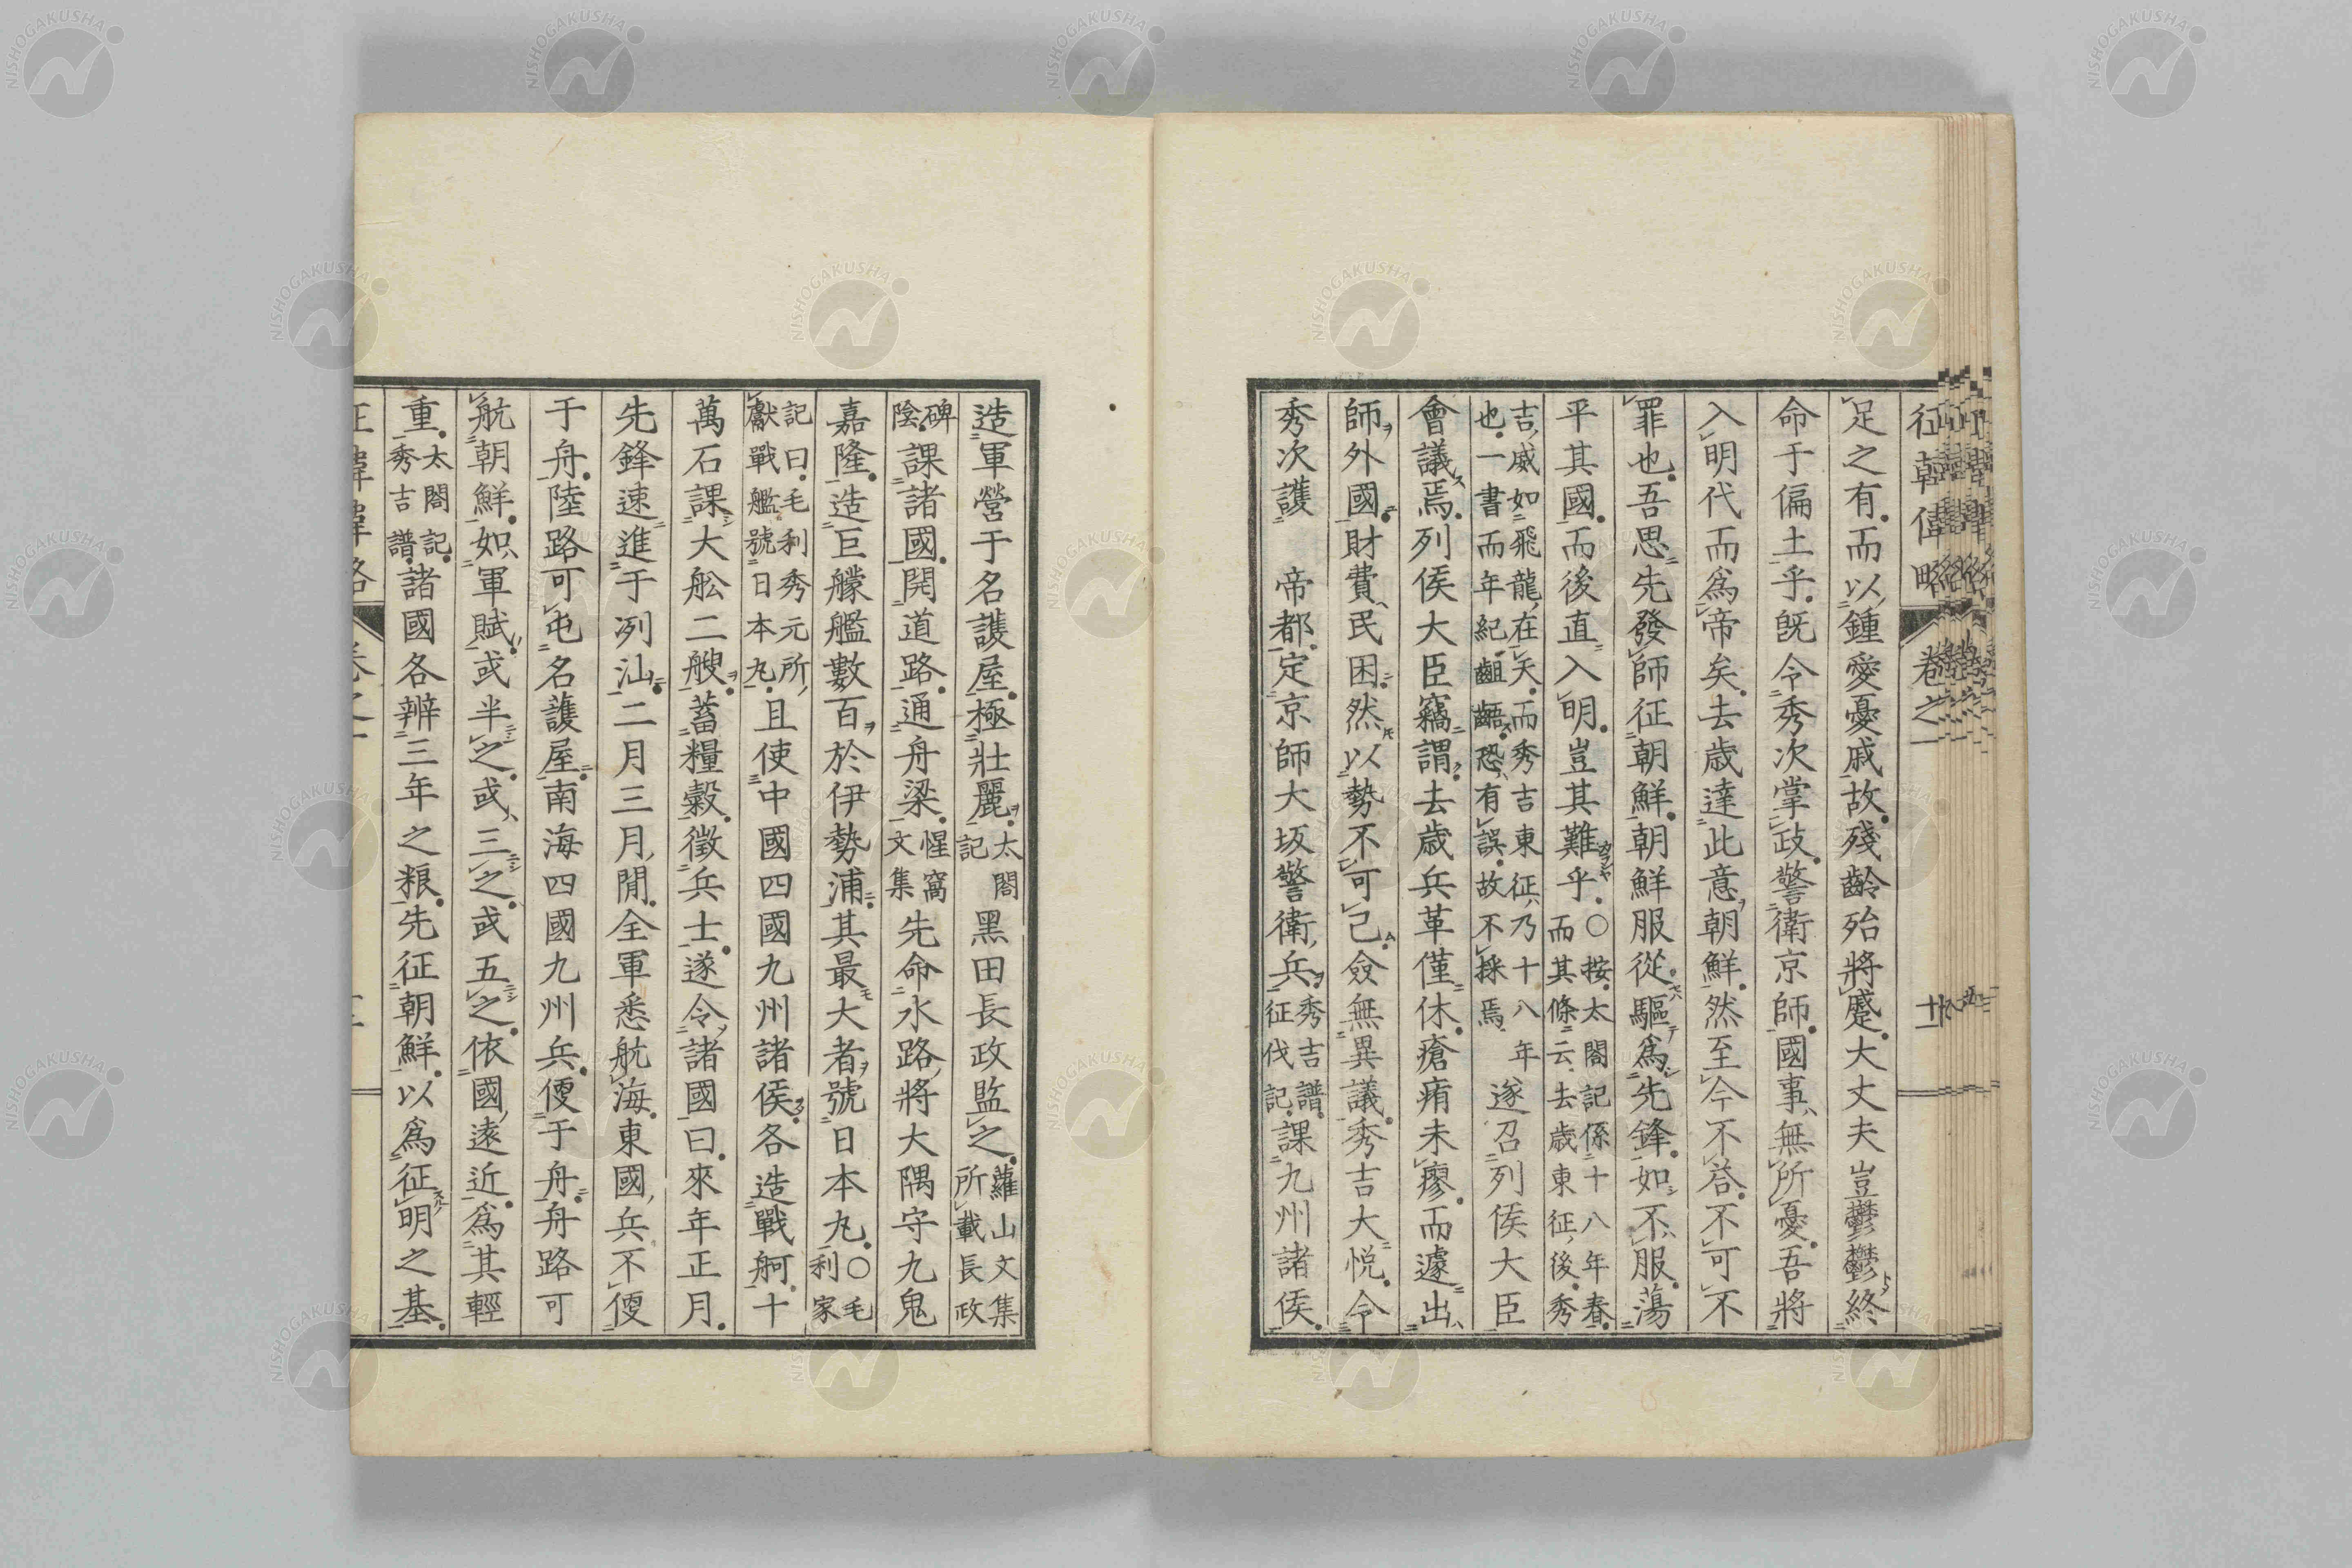 征韓偉略 卷之一 十一
足之有。而以鍾愛憂戚故。殘齡殆將蹙。大丈夫豈鬱鬱終
命于偏土乎。既令秀次掌政。警衛京師。國事無所憂。吾將
入明代而爲帝矣。去歳達此意朝鮮。然至今不答。不可不
罪也。吾思先發師征朝鮮。朝鮮服從。驅爲先鋒。如不服。蕩
平其國。而後直入明。豈其難乎。〇按。太閤記係十八年春。而其條云。去歳東征後。秀
吉威如飛龍在天。而秀吉東征乃十八年也。一書而年紀齟齬。恐有誤。故不採焉。遂召列侯大臣
會議焉。列侯大臣竊謂。去歳兵革僅休。瘡痏未瘳。而遽出
師外國。財費民困。然以勢不可已。僉無異議。秀吉大悦。令
秀次護 帝都。定京師大坂警衛兵。秀吉譜。征伐記。課九州諸侯。
造軍營于名護屋。極壯麗。太閤記 黑田長政監之。蘿山文集所載長政
碑陰。課諸國。開道路。通舟梁。惺窩文集 先命水路將大隅守九鬼
嘉隆。造巨艨艦數百於伊勢浦。其最大者號日本丸。〇毛利家
記曰。毛利秀元所獻戰艦號日本丸。且使中國四國九州諸侯各造戰舸。十
萬石課大舩二艘。蓄糧穀。徵兵士。遂令諸國曰。來年正月。
先鋒速進于冽汕。二月三月間。全軍悉航海。東國兵不便
于舟。陸路可屯名護屋。南海四國九州兵。便于舟。舟路可
航朝鮮。如軍賦。或半之。或三之。或五之。依國遠近。爲其輕
重。太閤記。秀吉譜。諸國各辨三年之粮。先征朝鮮。以爲征明之基。